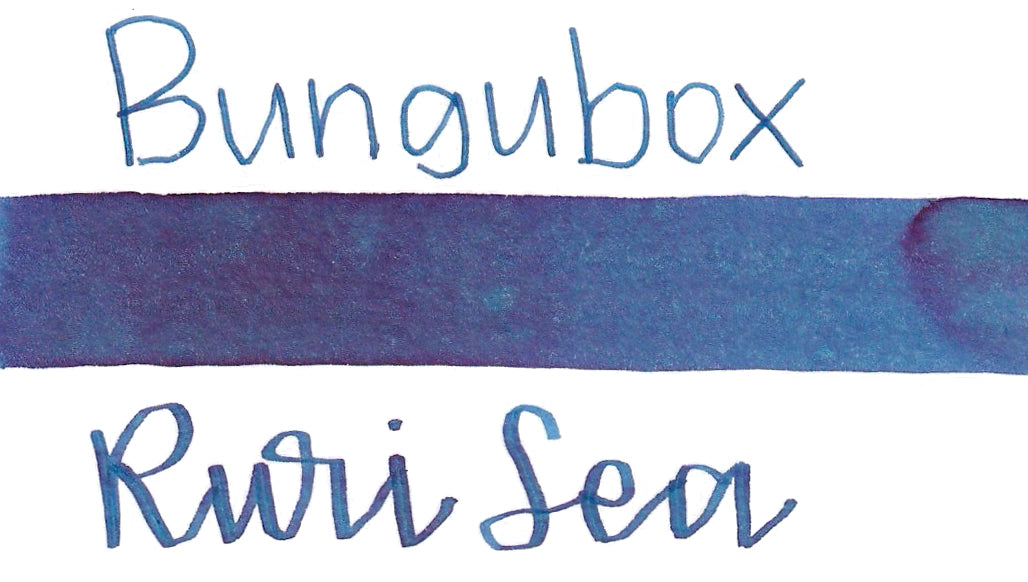 Bungubox
Ruri Sea